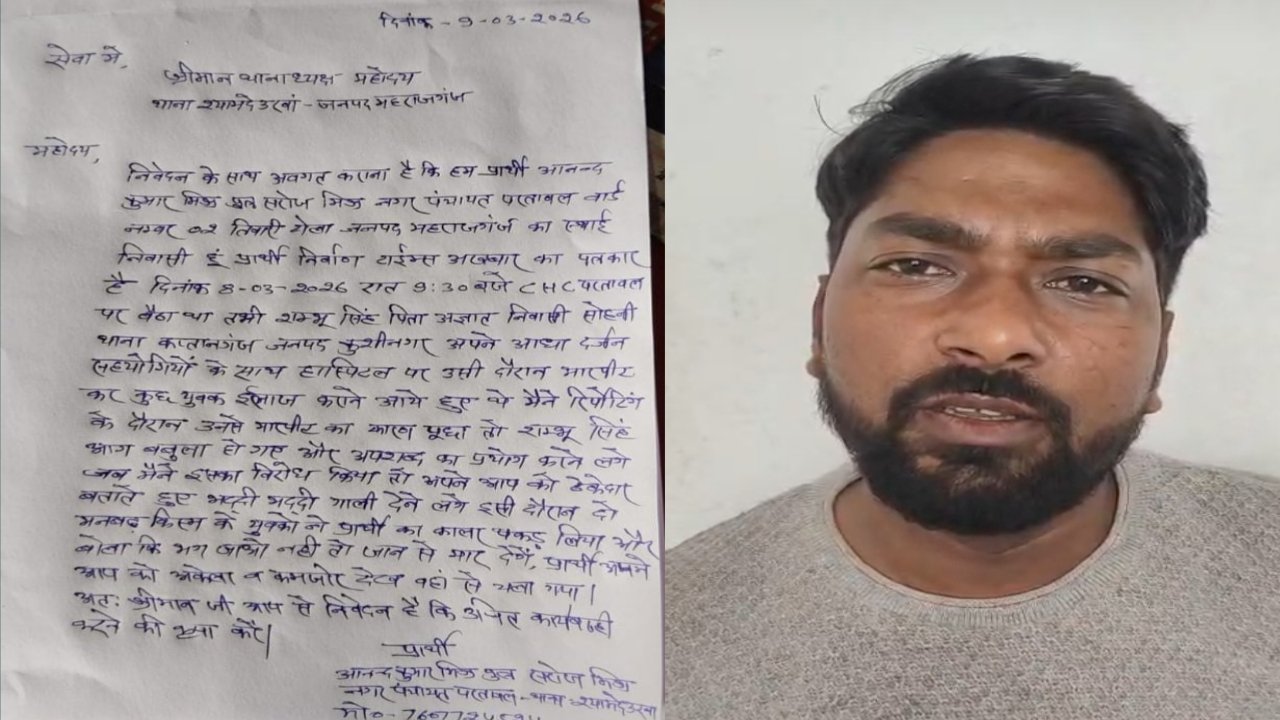 दिनांक - 9-03-2026
सेवा मे,
श्रीमान थानाध्यक्ष महोदय
थाना श्यामदेउरवां - जनपद महराजगंज
महोदय,
निवेदन के साथ अवगत कराना है कि हम प्रार्थी आनन्द
कुमार मिश्र पुत्र सरोज मिश्र नगर पंचायत परतावल वार्ड
नम्बर 02 तिवारी टोला जनपद महराजगंज का स्थाई
निवासी हूं प्रार्थी निर्वाण टाईम्स अखबार का पत्रकार
है दिनांक 8-03-2026 रात 9:30 बजे CHC परतावल
पर बैठा था तभी शम्भू सिंह पिता अज्ञात निवासी सोहनी
थाना कप्तानगंज जनपद कुशीनगर अपने आधा दर्जन
सहयोगियों के साथ हास्पिटल पर उसी दौरान मारपीट
कर कुछ युवक ईलाज कराने आये हुए थे मैने रिर्पोटिंग
के दौरान उनसे मारपीट का कारण पूछा तो शम्भू सिंह
आग बबुला हो गए और अपशब्द का प्रयोग करने लगे
जब मैने इसका विरोध किया तो अपने आप को ठेकेदार
बताते हुए भद्दी भद्दी गाली देने लगे इसी दौरान दो
मनबढ़ किस्म के युवकों ने प्रार्थी का काला पकड़ लिया और
बोला कि भाग जाओ नही तो जान से मार देगें, प्रार्थी अपने
आप को अकेला व कमजोर देख वहां से चला गया।
अतः श्रीमान जी आप से निवेदन है कि उचित कार्यवाही
करने की कृपा करें।
प्रार्थी
आनन्द कुमार मिश्र पुत्र सरोज मिश्र
नगर पंचायत परतावल - थाना - श्यामदेउरवा
मो०-